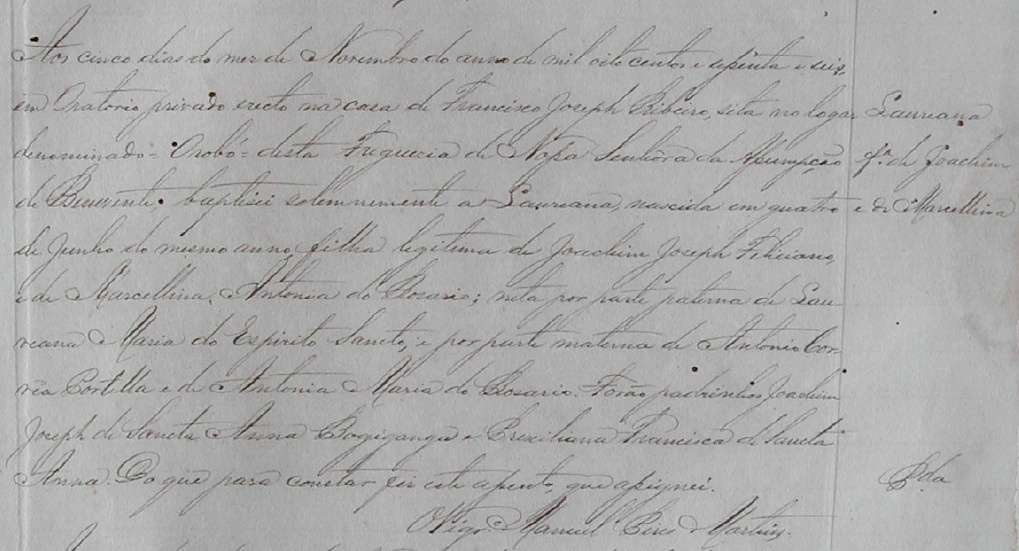 Aos cinco dias do mez de Novembro do anno de mil oito centos e setenta e seis,
em Oratorio privado erecto na casa de Francisco Joseph Ribeiro, sita no logar
Laureana
denominado = Orobó = desta Freguezia de Nossa Senhora da Assumpção
fª. de Joachim
de Benevente, baptisei solemnemente a Laureana, nascida em quatro
e de Marcellina
de Junho do mesmo anno, filha legitima de Joachim Joseph Feliciano,
e de Marcellina Antonia do Rosario; neta por parte paterna de Lau-
reana Maria do Espirito Sancto, e por parte materna de Antonio Cor-
rêa e de Antonia Maria do Rosario. Forão padrinhos Joachim
Joseph de Sancta Anna e Francisca de Sancta
Anna. Do que para constar fiz este assento, que assignei.
O Vigrº. Manuel Pires Martins.